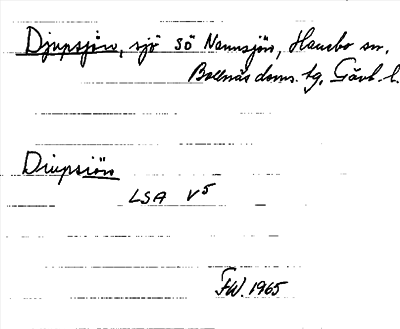 Djupsjön, sjö sö Nannsjön, Hanebo sn,
Bollnäs doms. tg, Gävb. l.
Diupsiön
LSA V5
FW. 1965